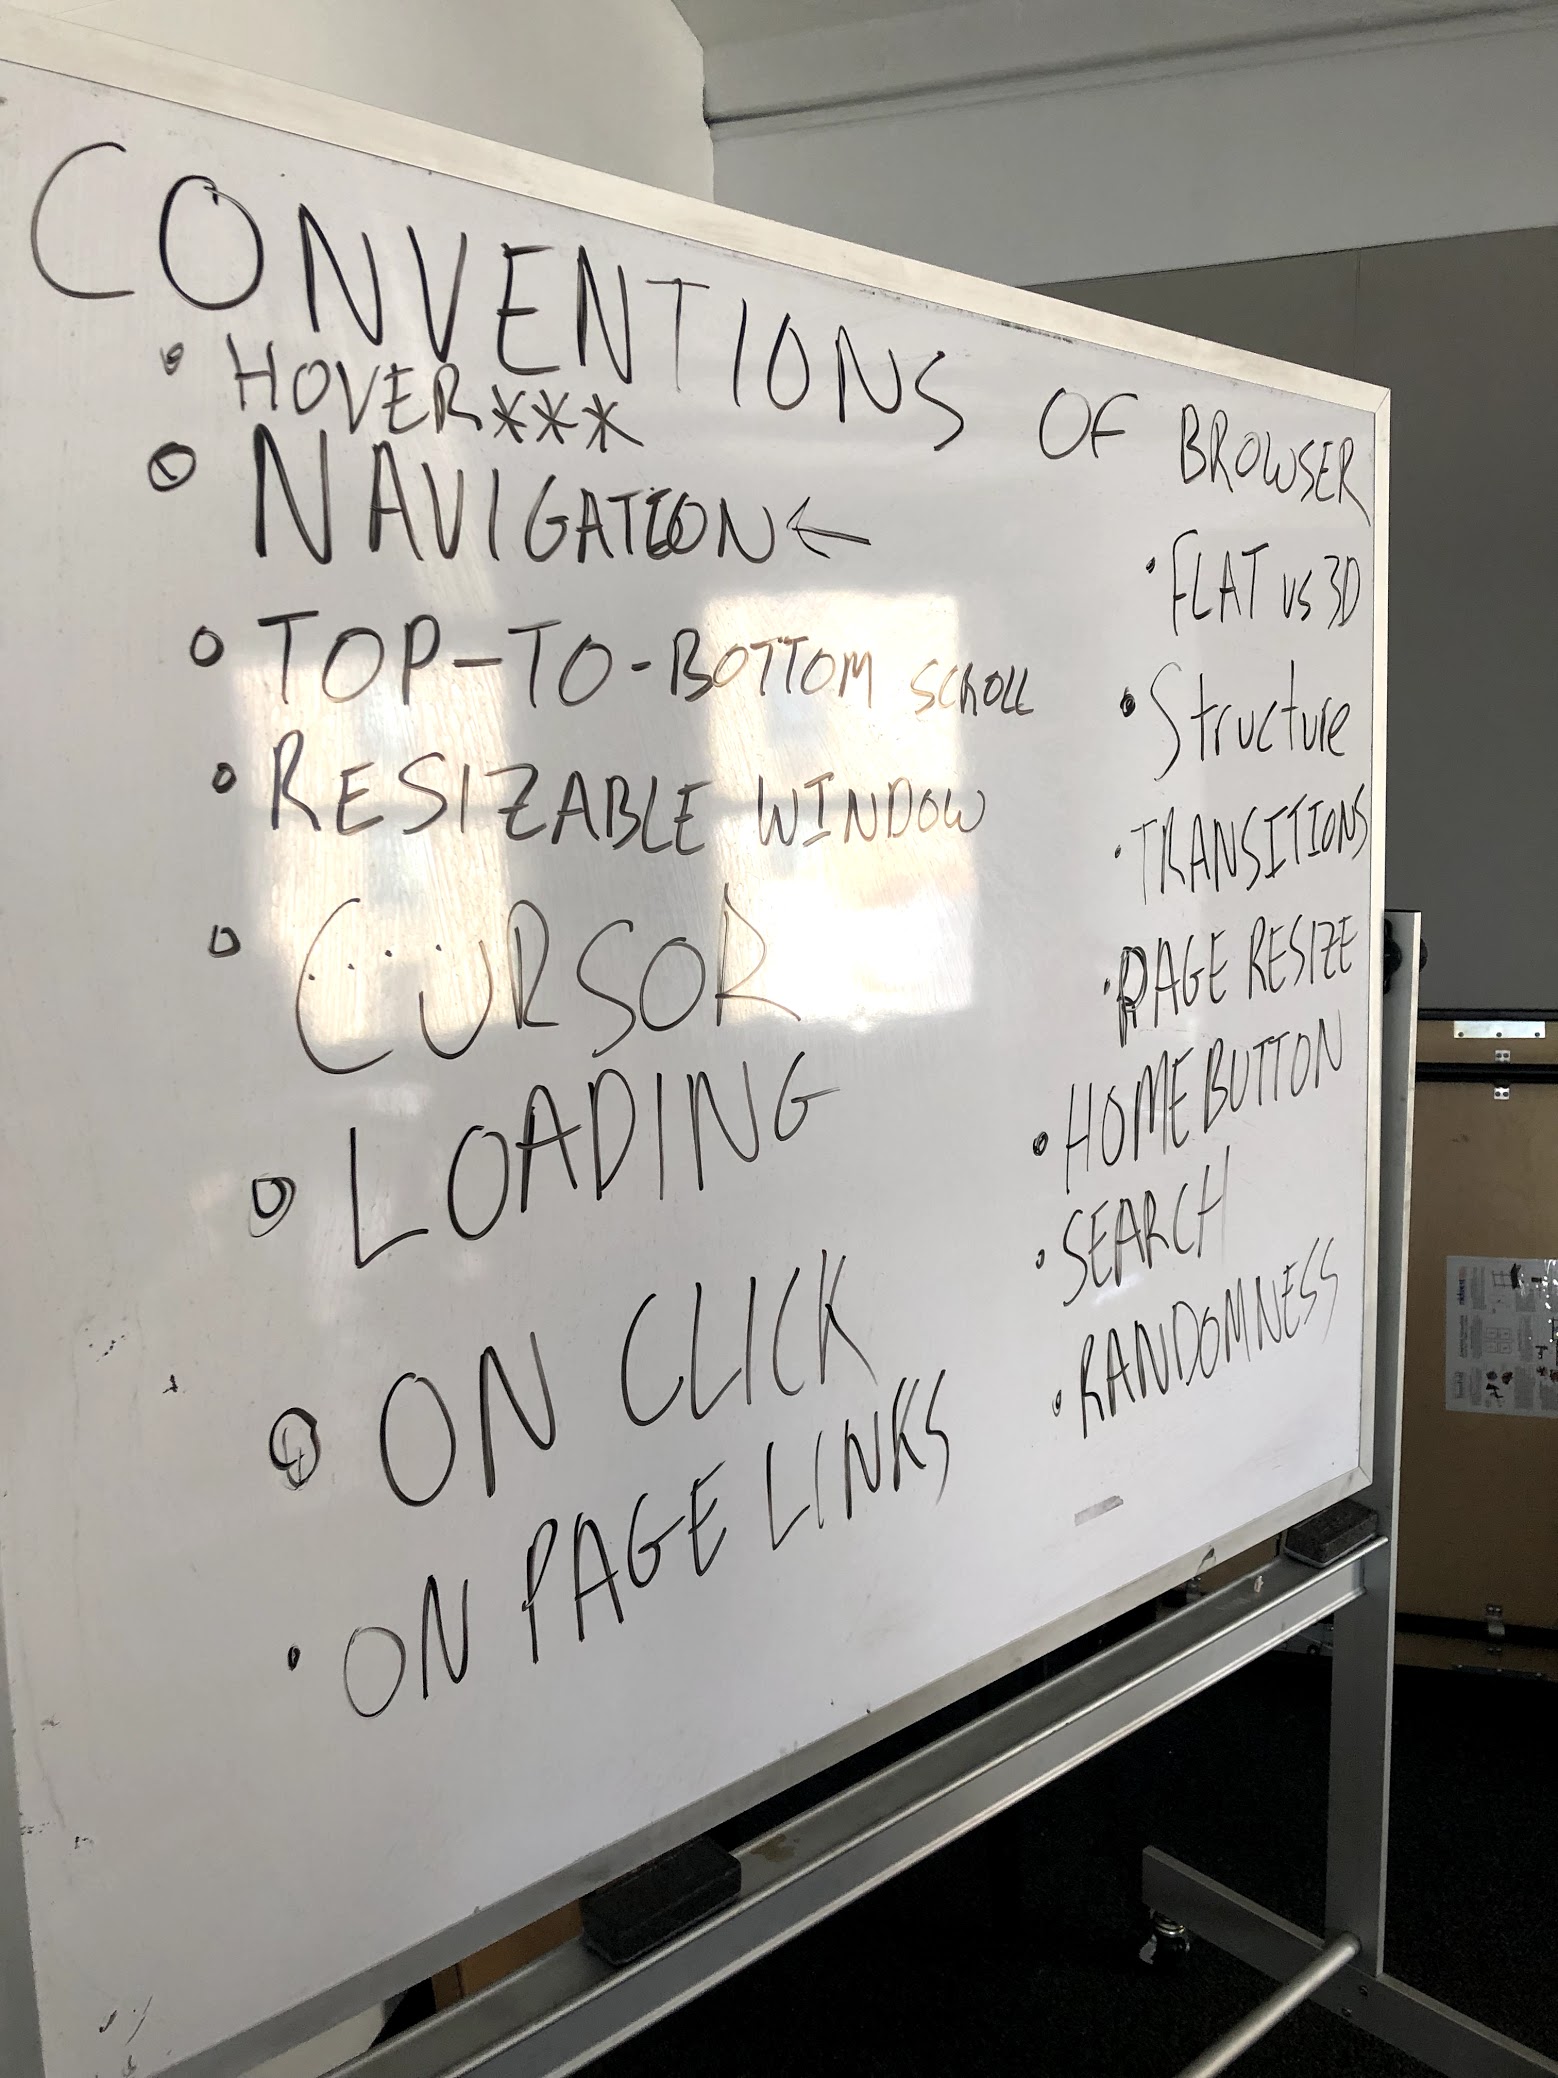 CONVENTIONS OF BROWSER
• HOVER***
• NAVIGATION ←
• TOP-TO-BOTTOM SCROLL
• RESIZABLE WINDOW
• CURSOR
• LOADING
• ON CLICK
• ON PAGE LINKS
• FLAT vs 3D
• Structure
• TRANSITIONS
• PAGE RESIZE
• HOME BUTTON
• SEARCH
• RANDOMNESS